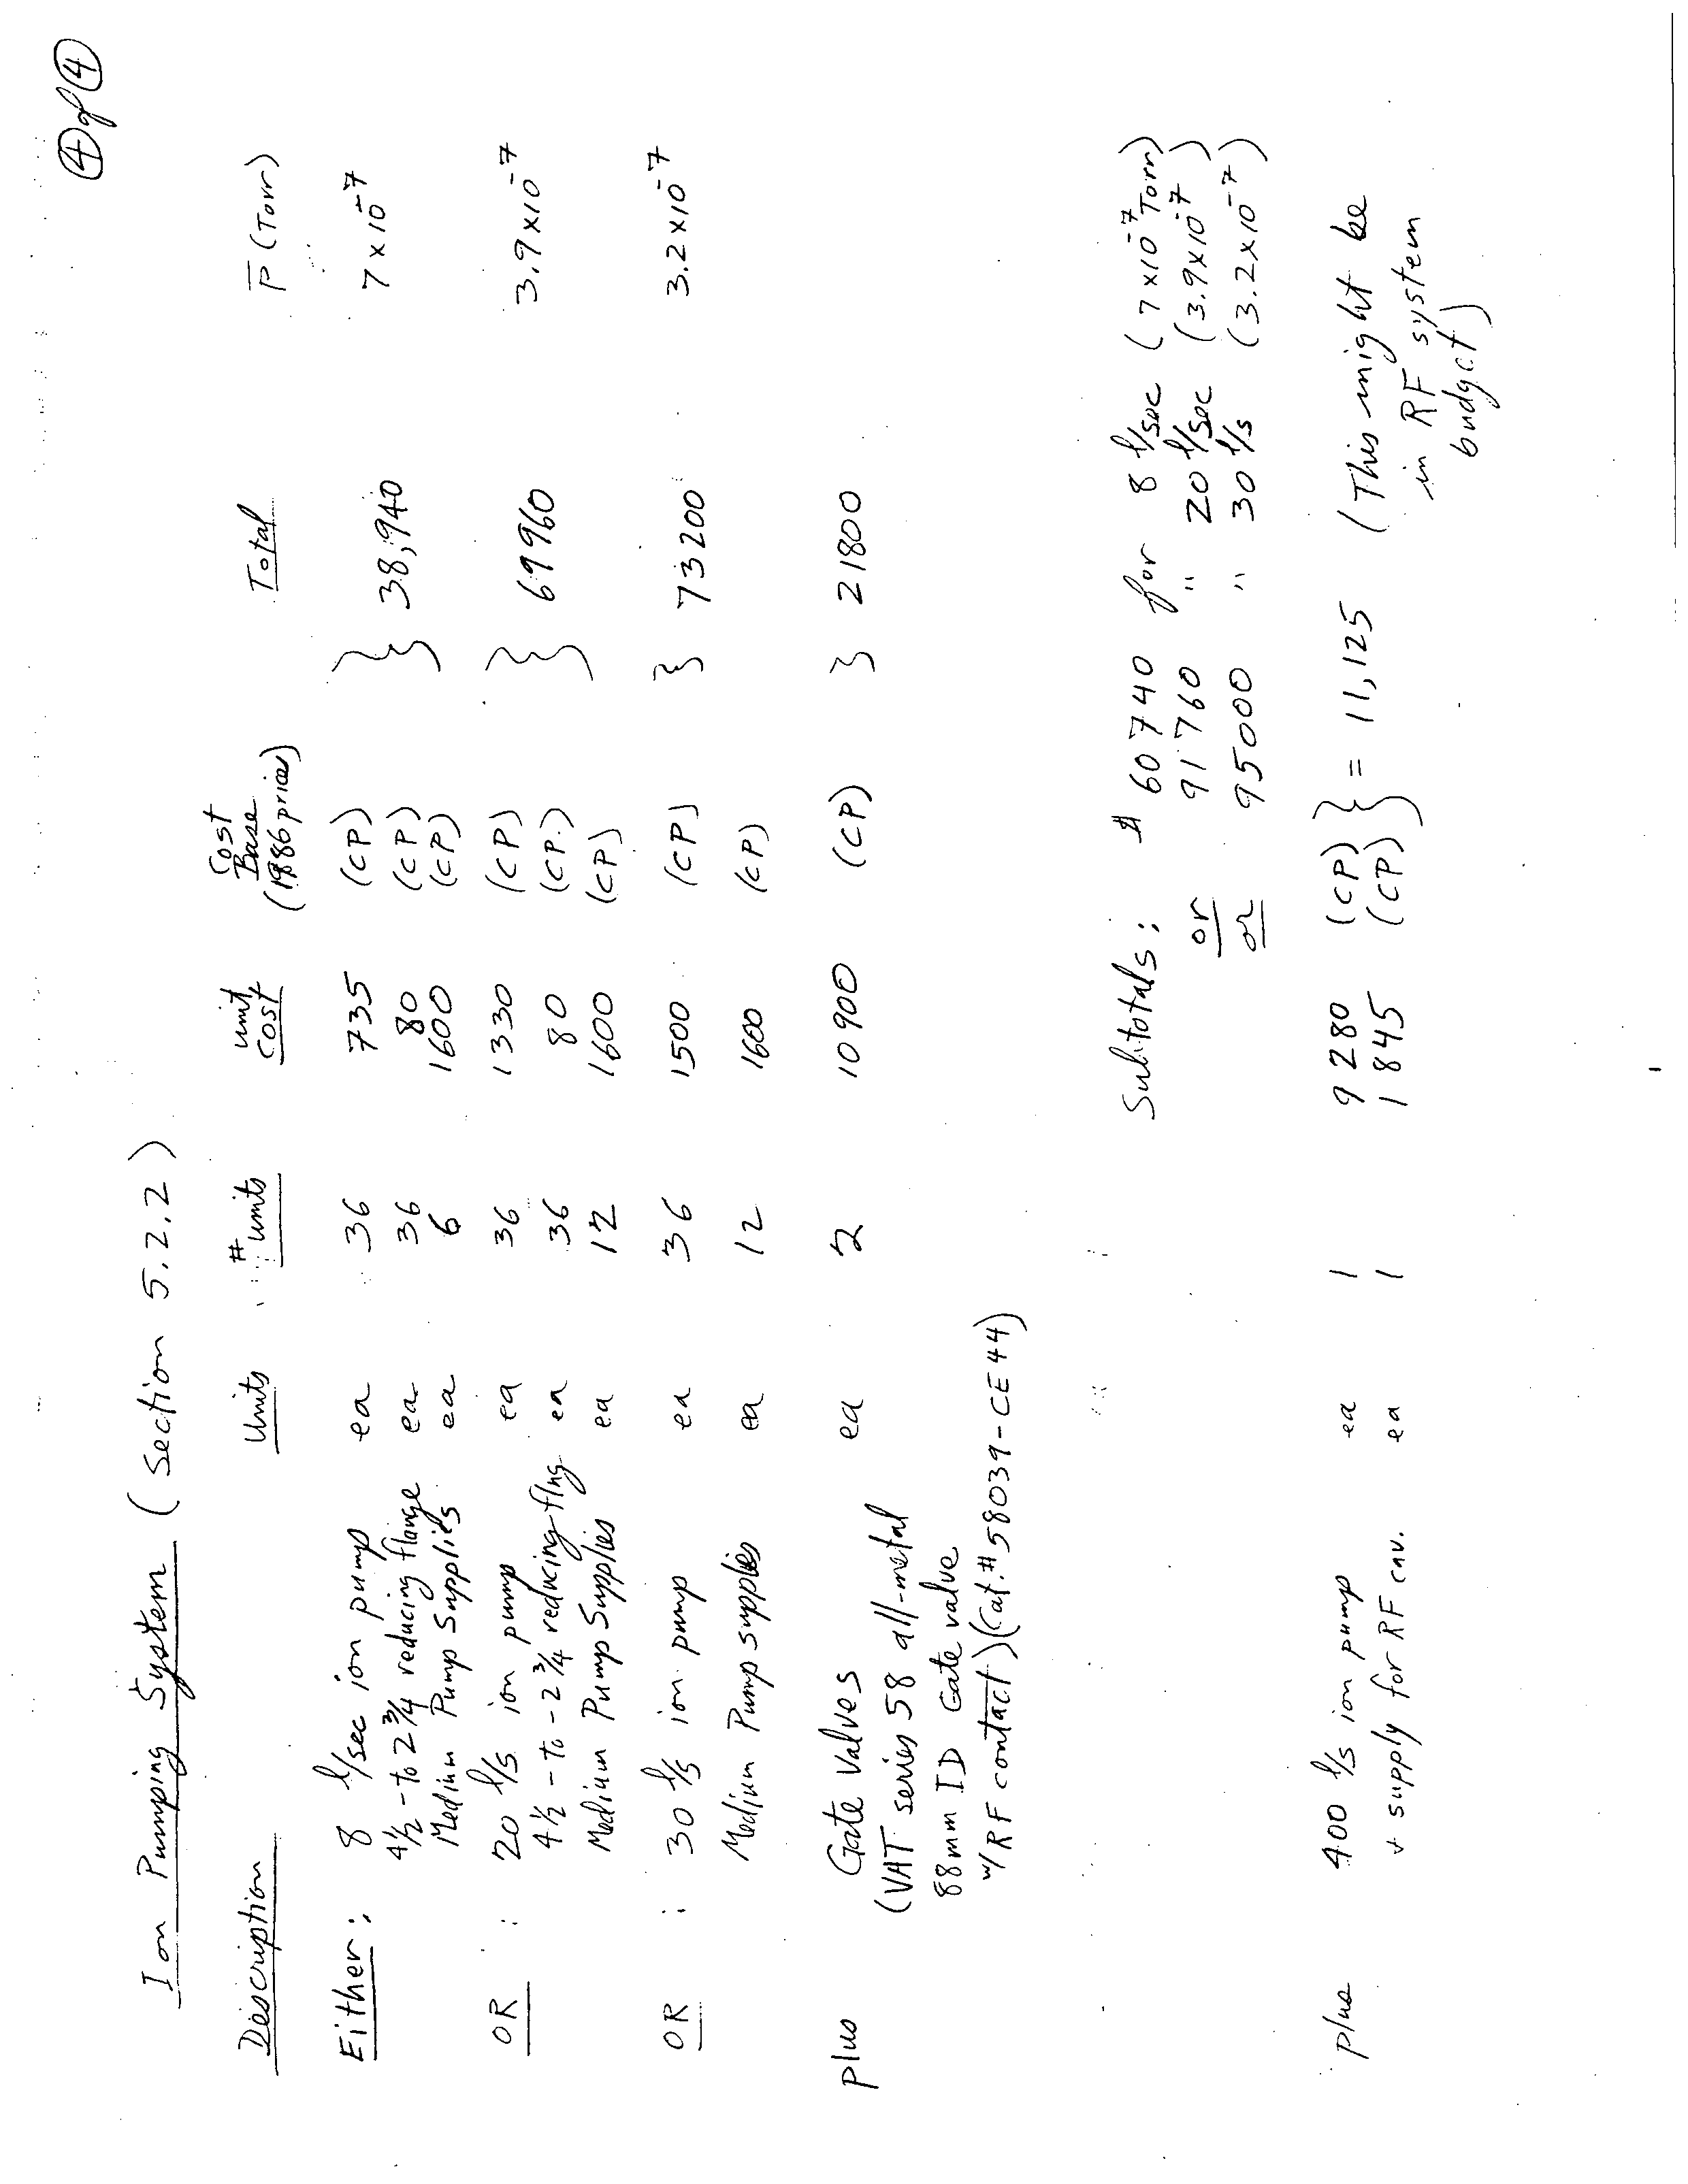 ④ of ④
Ion Pumping System (Section 5.2.2)
Description Units # units unit cost Cost Base (1986 prices) Total P̅ (Torr)
Either: 8 l/sec ion pump ea 36 735 (CP) } 38,940 7 x 10⁻⁷
4½ - to 2¾ reducing flange ea 36 80 (CP)
Medium Pump Supplies ea 6 1600 (CP)
OR : 20 l/s ion pump ea 36 1330 (CP) } 69960 3.9 x 10⁻⁷
4½ - to - 2¾ reducing flng ea 36 80 (CP.)
Medium Pump Supplies ea 12 1600 (CP)
OR : 30 l/s ion pump ea 36 1500 (CP) } 73200 3.2 x 10⁻⁷
Medium Pump supplies ea 12 1600 (CP)
plus Gate Valves ea 2 10900 (CP) } 21800
(VAT series 58 all-metal
88mm ID Gate valve
w/RF contact)(Cat.# 58039-CE44)
Subtotals: $ 60740 for 8 l/sec (7 x10⁻⁷ Torr)
or 91760 " 20 l/sec (3.9x10⁻⁷)
or 95000 " 30 l/s (3.2x10⁻⁷)
plus 400 l/s ion pump ea 1 9280 (CP) } = 11,125 (This might be
+ supply for RF cav. ea 1 1845 (CP) in RF system
budget)